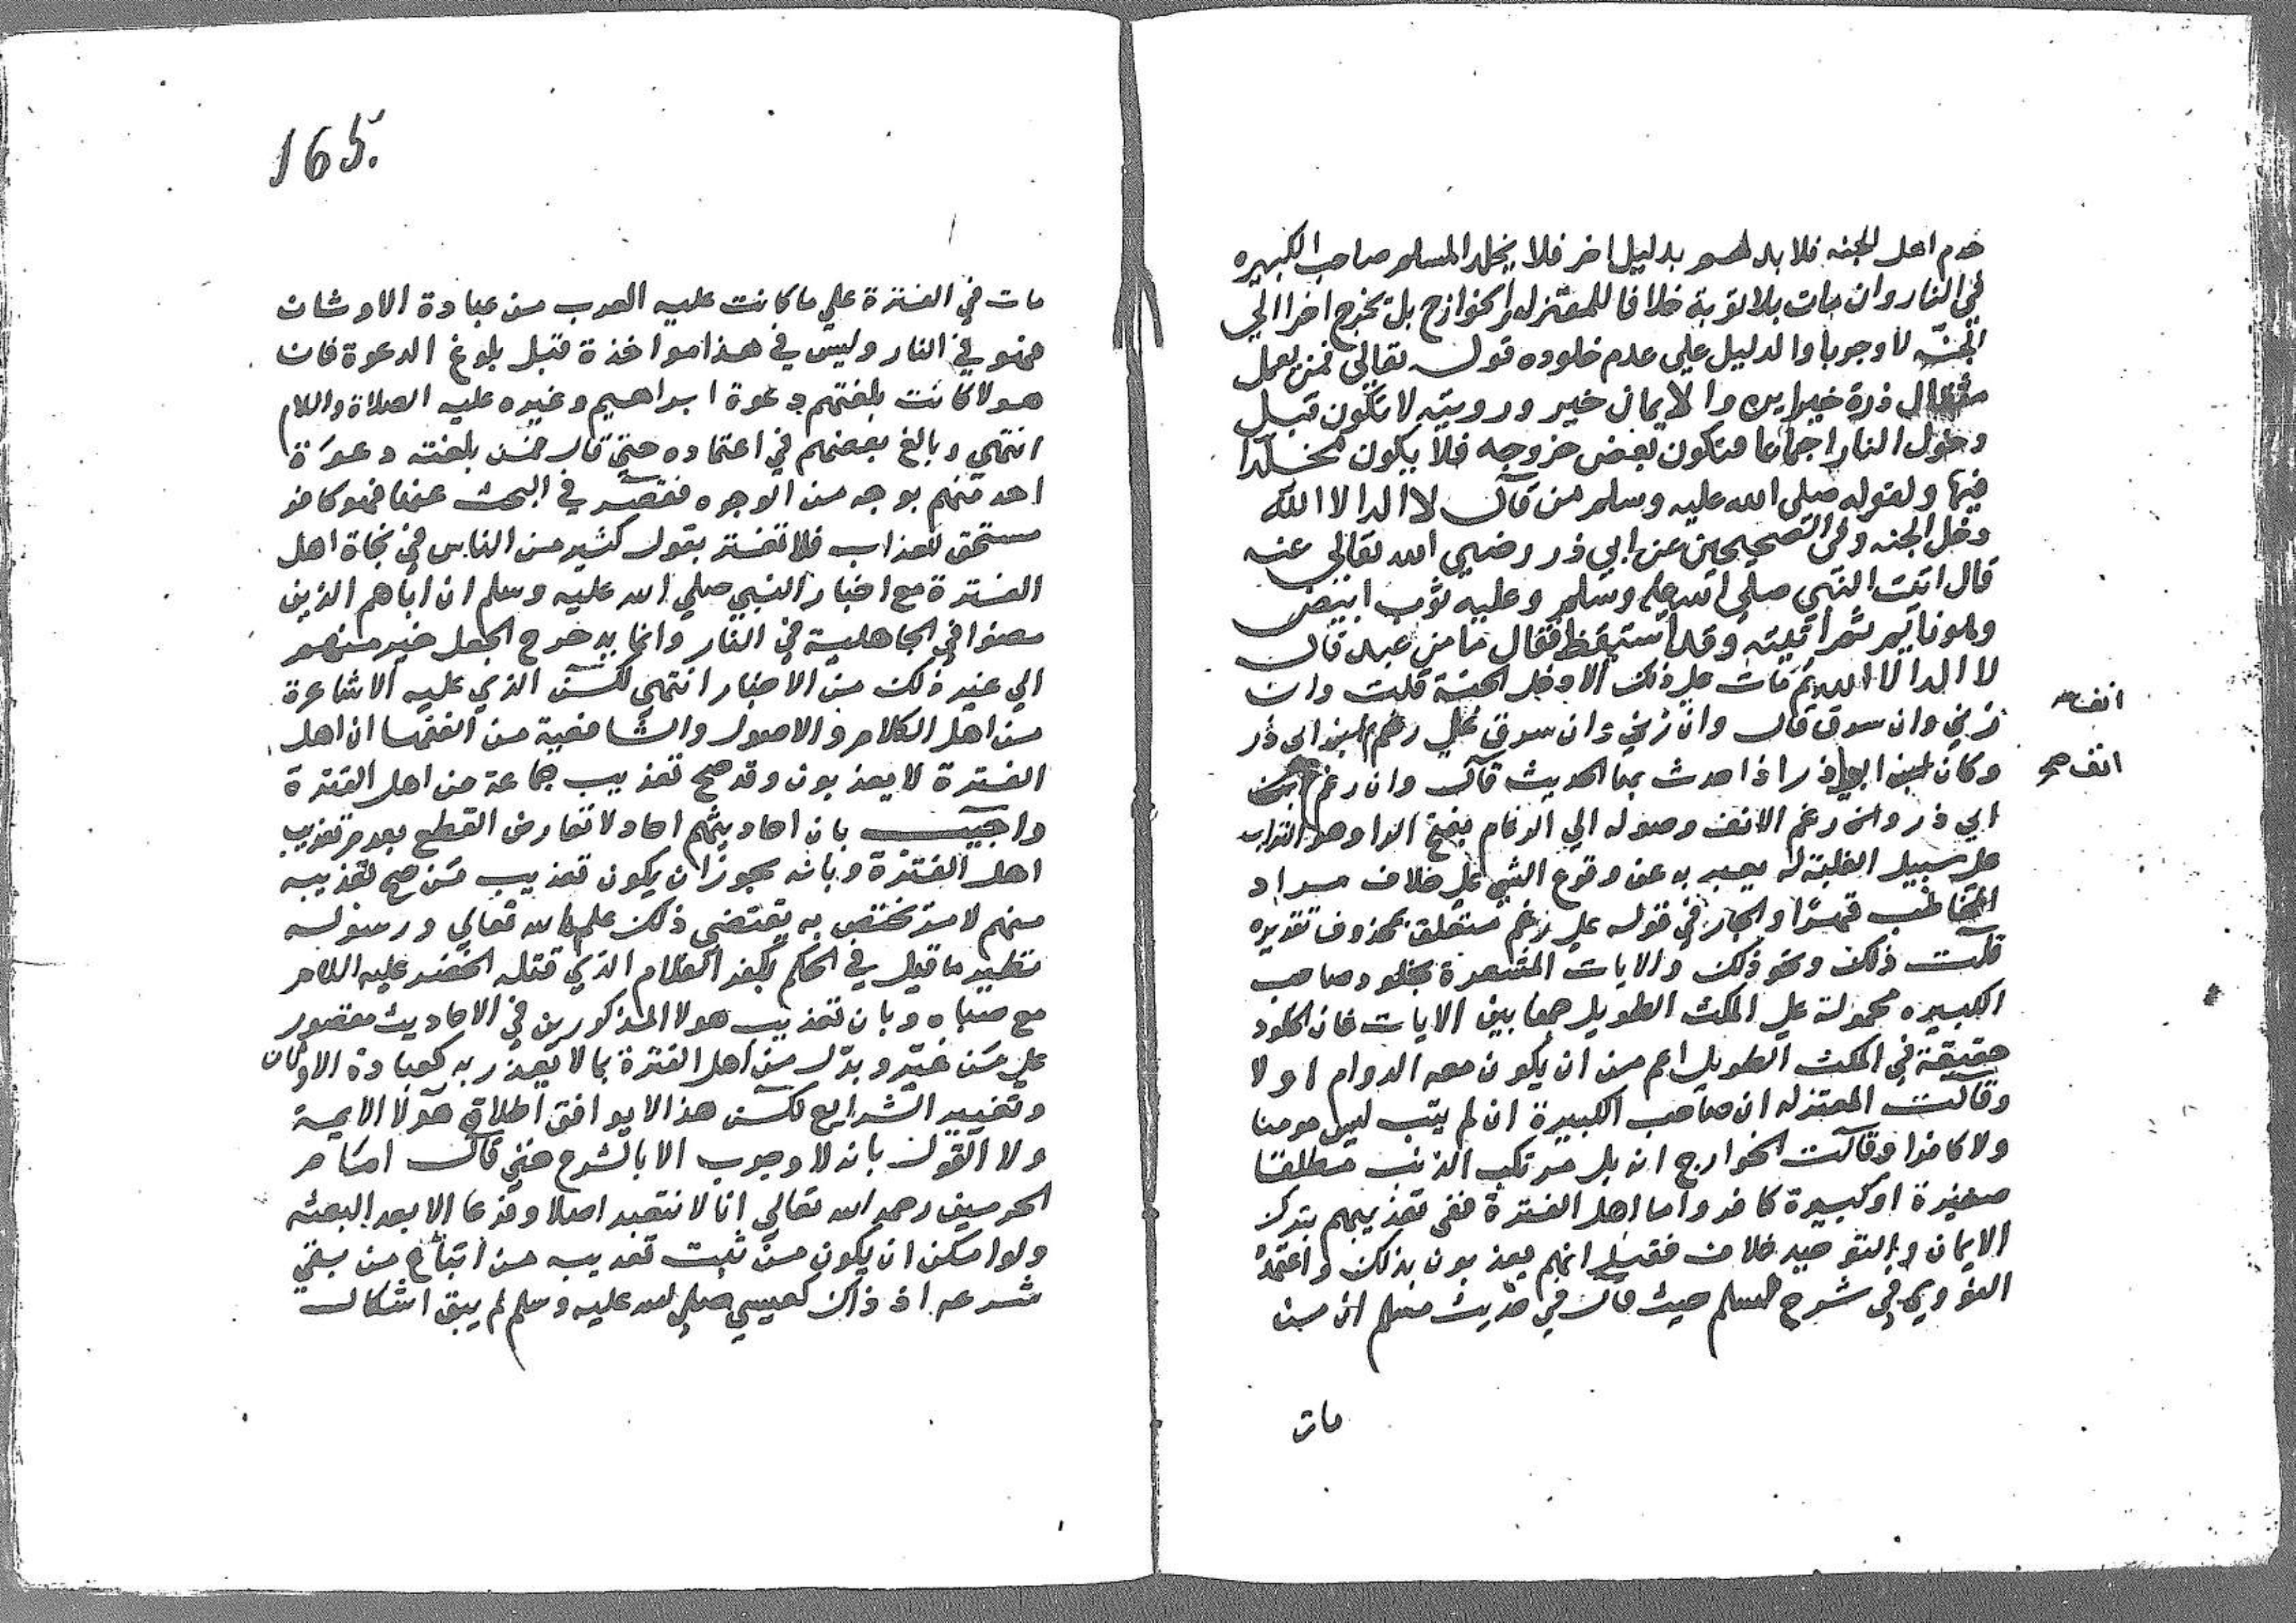 خدم اهل الجنه فلا بد لهم بدليل اخر فلا يخلد المسلم صاحب الكبيره
في النار وان مات بلا توبة خلافا للمعتزله والخوازج بل يخرج اخرا الي
الجنه لا وجوبا والدليل علي عدم خلوده قوله تعالي فمن يعمل
مثقال ذرة خيرا يره والايمان خير ورويته لا تكون قبل
دخول النار اجماعا فتكون بعض خروجه فلا يكون مخلدا
فيها ولقوله صلي الله عليه وسلم من قال لا اله الا الله
دخل الجنه وفي الصحيحين عن ابي ذر رضي الله تعالي عنه
قال اتيت النبي صلي الله عليه وسلم وعليه ثوب ابيض
وهو نايم ثم اتيته وقد استيقظ فقال ما من عبد قال
لا اله الا الله ثم مات علي ذلك الا دخل الجنة قلت وان
زني وان سرق قال وان زني وان سرق علي رغم ابي ذر
انف
وكان ابو ذر اذا حدث بها الحديث قال وان رغم
انف صح
ابي ذر واصل رغم الانف وصوله الي الرغام بفتح الرا وهو التراب
علي سبيل الغلبة له يعبر به عن وقوع الشي علي خلاف مراد
المخاطب قهرا والجار في قوله علي رغم متعلق بمحذوف تقديره
قلت ذلك ونحو ذلك والايات المشعرة بخلود صاحب
الكبيره محمولة علي المكث الطويل جمعا بين الايات فان الخلود
حقيقة في المكث الطويل اعم من ان يكون معه الدوام او لا
وقالت المعتزله ان صاحب الكبيرة ان لم يتب ليس مومنا
ولا كافرا وقالت الخوارج انه بل مرتكب الذنب مطلقا
صغيرة او كبيرة كافر واما اهل الفترة ففي تعذيبهم بترك
الايمان والتوحيد خلاف فقيل انهم يعذبون بذلك واعتمده
النووي في شرح المسلم حيث قال في حديث مسلم ان من
مات
165.
مات في الفترة علي ما كانت عليه العرب من عبادة الاوثان
فهو في النار وليس في هذا مواخذة قبل بلوغ الدعوة فان
هولا كانت بلغتهم دعوة ابراهيم وغيره عليه الصلاة والسلام
انتهي وبالغ بعضهم في اعتماده حتي قال فمن بلغته دعوة
احد منهم بوجه من الوجوه فقصر في البحث عنها فهو كافر
مستحق للعذاب فلا تغتر بقول كثير من الناس في نجاة اهل
الفترة مع اخبار النبي صلي الله عليه وسلم ان اباهم الذين
مضوا في الجاهلية في النار وانما يدحرج الجعل خير منهم
الي غير ذلك من الاخبار انتهي لكن الذي عليه الاشاعرة
من اهل الكلام والاصول والشافعية من الفقها ان اهل
الفترة لا يعذبون وقد صح تعذيب جماعة من اهل الفترة
واجيب بان احاديثهم احاد لا تعارض القطع بعدم تعذيب
اهل الفترة وبانه يجوز ان يكون تعذيب من صح تعذيبه
منهم لامر يختص به يقتضي ذلك علمه الله تعالي ورسوله
نظير ما قيل في الحكم بكفر الغلام الذي قتله الخضر عليه السلام
مع صباه وبان تعذيب هولا المذكورين في الاحاديث مقصور
علي من غير وبدل من اهل الفترة بما لا يعذر به كعبادة الاوثان
وتغيير الشرايع لكن هذا لا يوافق اطلاق هولا الايمة
ولا القول بانه لا وجوب الا بالشرع حتي قال امام
الحرمين رحمه الله تعالي انا لا نتعبد اصلا وفرعا الا بعد البعثه
ولو امكن ان يكون من ثبت تعذيبه من اتباع من بقي
شرعه اذ ذاك كعيسي صلي الله عليه وسلم لم يبق اشكال